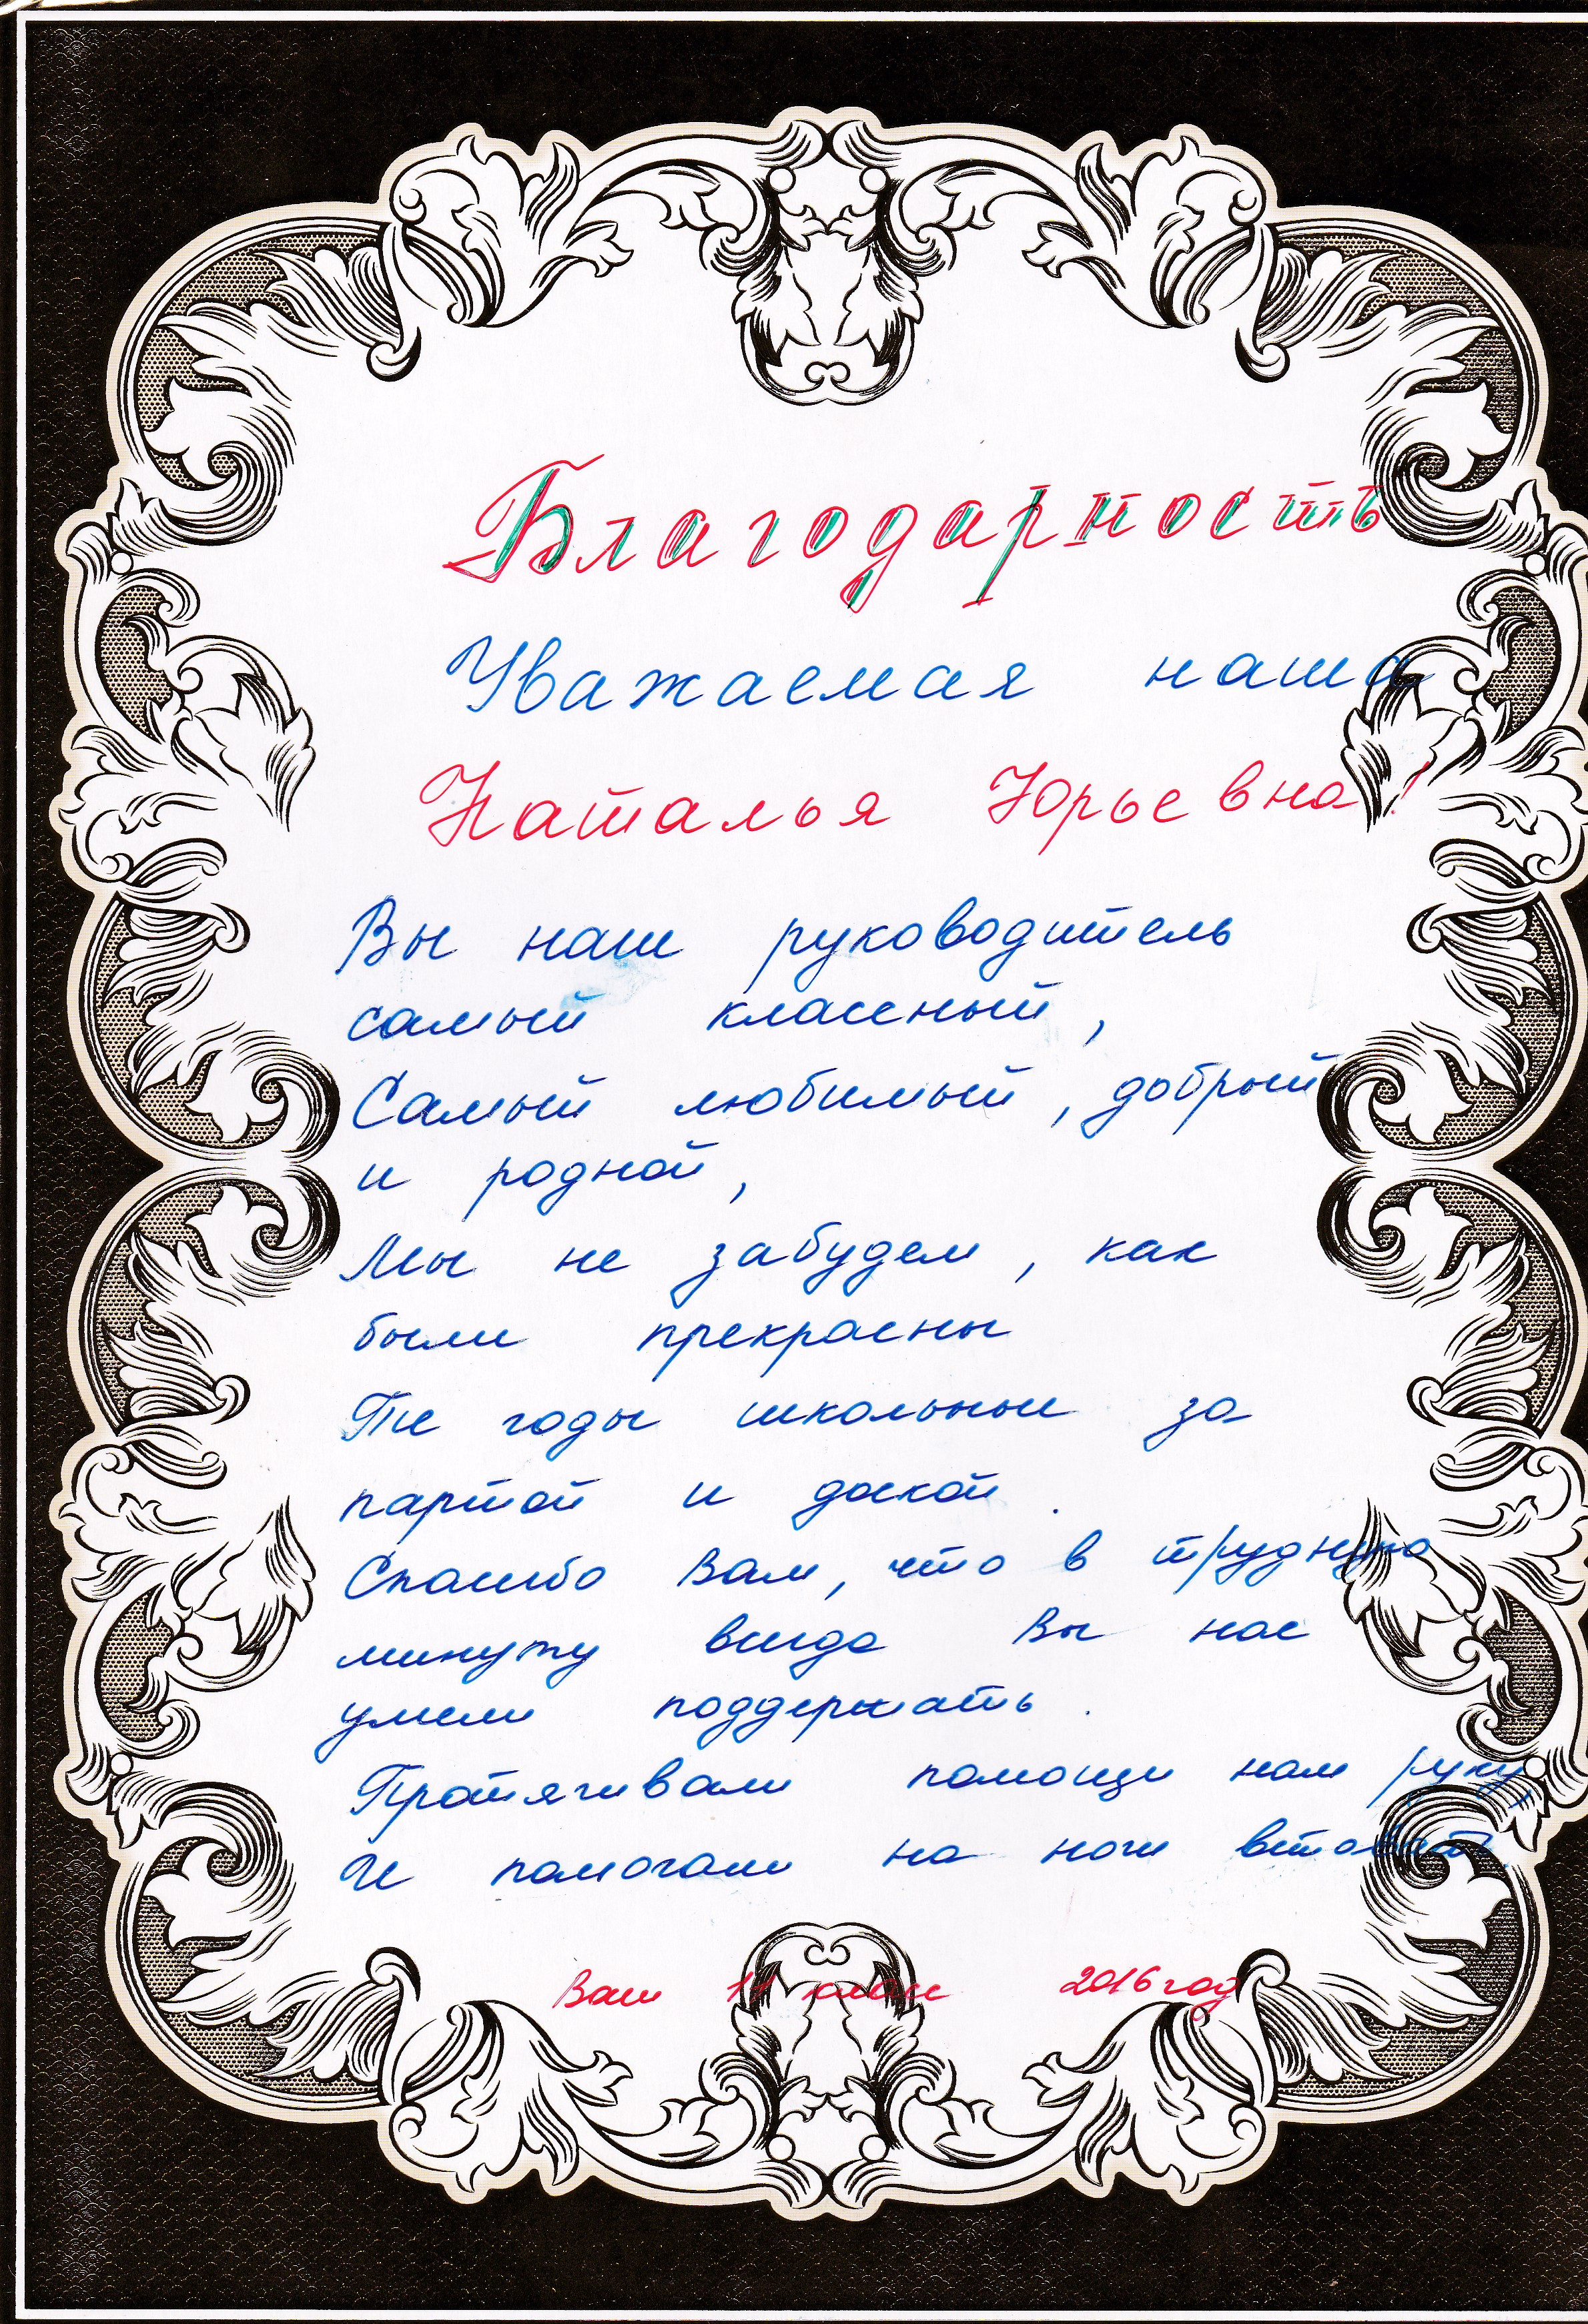 Благодарность
Уважаемая наша
Наталья Юрьевна!
Вы наш руководитель
самый классный,
Самый любимый, добрый
и родной,
Мы не забудем, как
были прекрасны
Те годы школьные за
партой и доской.
Спасибо Вам, что в трудную
минуту всегда Вы нас
умели поддержать.
Протягивали помощи нам руку,
И помогали на ноги вставать.
Ваш 11 класс 2016 год